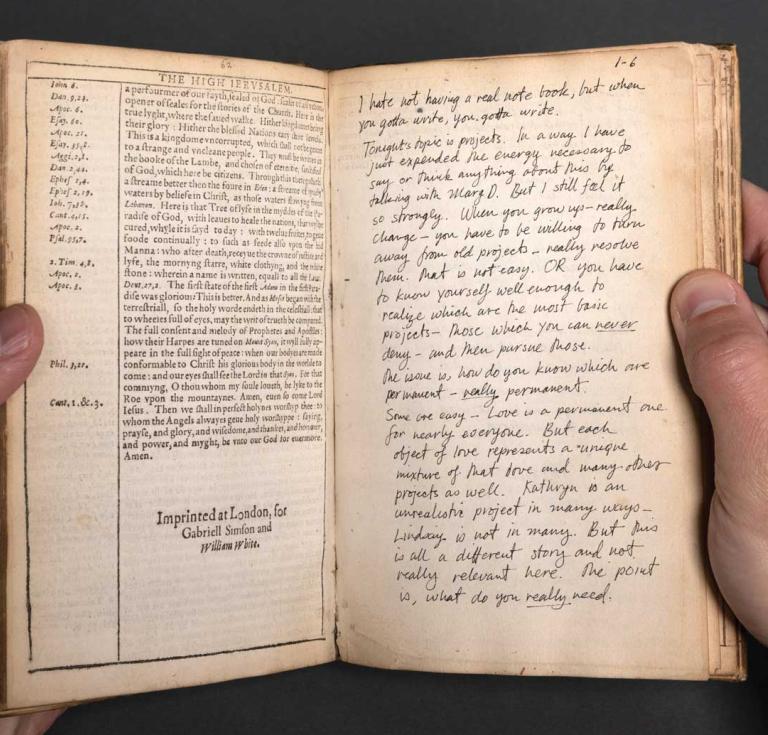 62
THE HIGH IERVSALEM.
Iohn 6.
Dan. 9,24.
Apoc. 6.
Esay. 60.
Apoc. 21.
Esay. 35,8.
Aggi. 2,8.
Dan. 2,44.
Ephes. 1,4.
Ephes. 2,19.
Ioh. 7,38.
Cant. 4,15.
Apoc. 2.
Psal. 95,7.
2. Tim. 4,8.
Apoc. 2.
Apoc. 3.
Phil. 3,21.
Cant. 1. &c. 3.
a perfourmer of our fayth, sealed of God
opener of seales for the stories of the Church. Here is the
true lyght, where the saued walke. Hither kings bring
their glory: Hither the blessed Nations
This is a kingdome vncorrupted, which shall not be geuen
to a strange and vncleane people. They must be written in
the booke of the Lambe, and chosen of eternitie, sanctified
of God, which here be citizens. Through this
a streame better then the foure in Eden: a streame of
waters by beliefe in Christ, as those waters flowing from
Lebanon. Here is that Tree of lyfe in the myddes of the Pa-
radise of God, with leaues to heale the nations, that
cured, whyle it is sayd to day: with twelue fruites, to geue
foode continually: to such as feede also vpon the hid
Manna: who after death, receyue the crowne of iustice and
lyfe, the mornyng starre, white clothyng, and the white
stone: wherein a name is written, equall to all the Law.
Deut. 27,2. The first state of the first Adam in the first Para-
dise was glorious: This is better. And as Moses began with the
terrestriall, so the holy worde endeth in the celestiall: that
to wheeles full of eyes, may the writ of trueth be compared.
The full consent and melody of Prophetes and Apostles:
how their Harpes are tuned on Mount Syon, it wyll fully ap-
peare in the full sight of peace: when our bodyes are made
conformable to Christ his glorious body in the worlde to
come: and our eyes shall see the Lord in that Syon. For that
commyng, O thou whom my soule loueth, be lyke to the
Roe vpon the mountaynes. Amen, euen so come Lord
Iesus. Then we shall in perfect holynes worshyp thee: to
whom the Angels alwayes geue holy worshyppe: saying,
prayse, and glory, and wisedome, and thankes, and honour,
and power, and myght, be vnto our God for euermore.
Amen.
Imprinted at London, for
Gabriell Simson and
William White.
1-6
I hate not having a real note book, but when
you gotta write, you gotta write.
Tonight's topic is projects. In a way I have
just expended the energy necessary to
say or think anything about this by
talking with Marg D. But I still feel it
so strongly. When you grow up - really
change - you have to be willing to turn
away from old projects - really resolve
them. That is not easy. OR you have
to know yourself well enough to
realize which are the most basic
projects - those which you can never
deny - and then pursue those.
The issue is, how do you know which are
permanent - really permanent.
Some are easy - Love is a permanent one
for nearly everyone. But each
object of love represents a unique
mixture of that love and many other
projects as well. Kathryn is an
unrealistic project in many ways -
Lindsay is not in many. But this
is all a different story and not
really relevant here. The point
is, what do you really need.